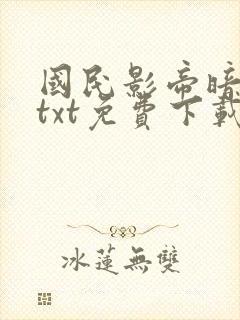 國民影帝暗
txt免費下載
冰蓮無雙